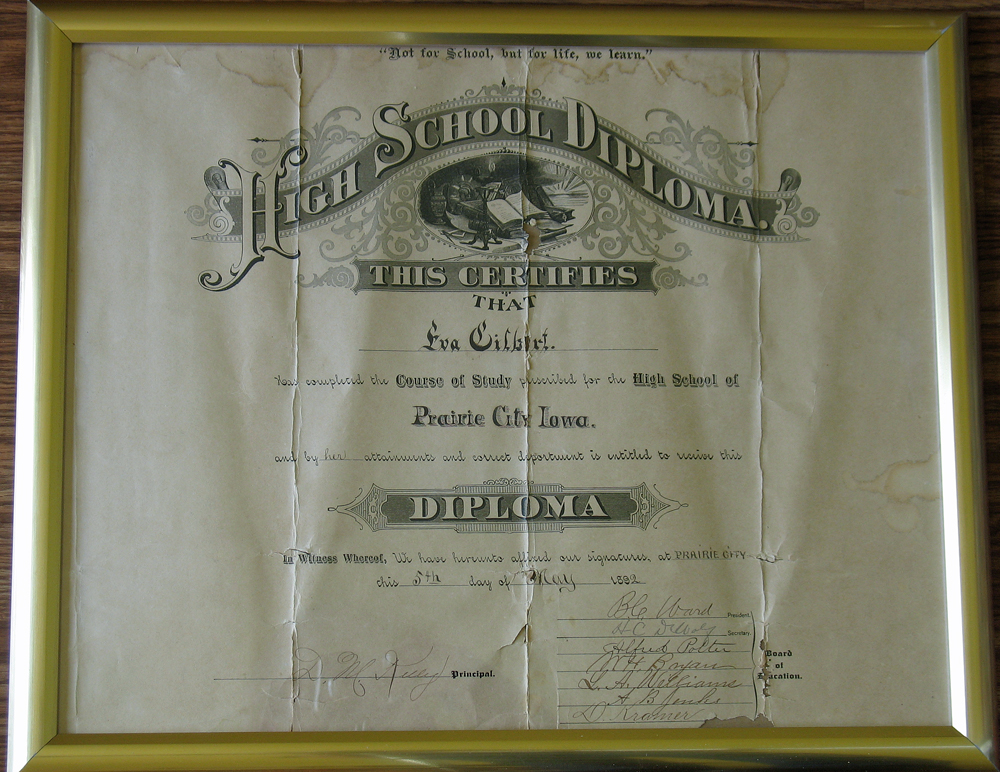 "Not for School, but for life, we learn."
HIGH SCHOOL DIPLOMA.
THIS CERTIFIES
THAT
Eva Gilbert.
Has completed the Course of Study prescribed for the High School of
Prairie City Iowa.
and by her attainments and correct deportment is entitled to receive this
DIPLOMA
In Witness Whereof, We have hereunto affixed our signatures, at PRAIRIE CITY
this 5th day of May 1892
Ward President.
H C Secretary.
Alfred Potter
Bryan Board
L. A. Williams of
A B Jenks Education.
D. Kramer
D. M. Kelly Principal.